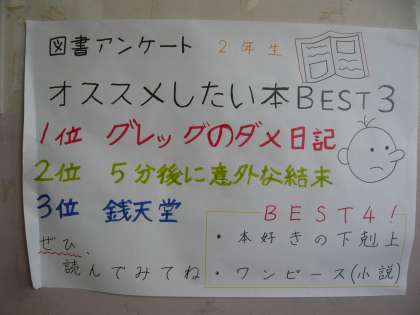 図書アンケート 2年生
オススメしたい本BEST3
1位 グレッグのダメ日記
2位 5分後に意外な結末
3位 銭天堂
BEST4!
・本好きの下剋上
・ワンピース(小説)
ぜひ、
読んでみてね